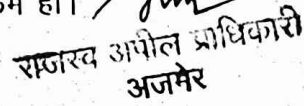 हो।
राजस्व अपील प्राधिकारी
अजमेर